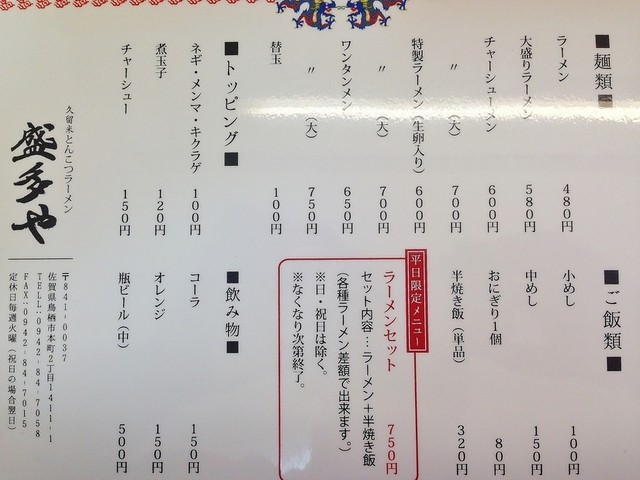 ■麺類■
ラーメン 480円
大盛りラーメン 580円
チャーシューメン 600円
〃 (大) 700円
特製ラーメン(生卵入り) 600円
〃 (大) 700円
ワンタンメン 650円
〃 (大) 750円
替玉 100円
■トッピング■
ネギ・メンマ・キクラゲ 100円
煮玉子 120円
チャーシュー 150円
■ご飯類■
小めし 100円
中めし 150円
おにぎり1個 80円
半焼き飯(単品) 320円
平日限定メニュー
ラーメンセット 750円
セット内容…ラーメン+半焼き飯
(各種ラーメン差額で出来ます。)
※日・祝日は除く。
※なくなり次第終了。
■飲み物■
コーラ 150円
オレンジ 150円
瓶ビール(中) 500円
久留米とんこつラーメン
盛多や
〒841-0037
佐賀県鳥栖市本町2丁目1411-1
TELL:0942-84-7058
FAX:0942-84-7015
定休日毎週火曜(祝日の場合翌日)